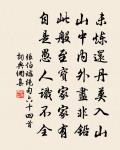 未煉還丹莫入山
山中内外盡非鉛
此般至寶家家有
自是愚人識不全
張伯端絕句六十四首
詞典網集